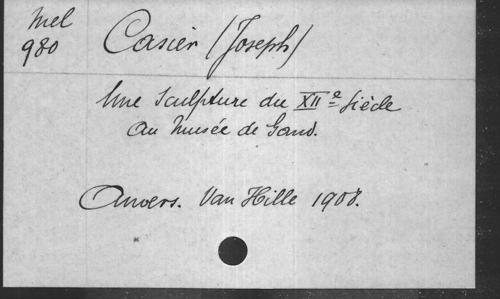 Mel
980
Casier (Joseph)
Une Sculpture du XIIe Siècle
au Musée de Gand.
Anvers. Van Hille 1908.